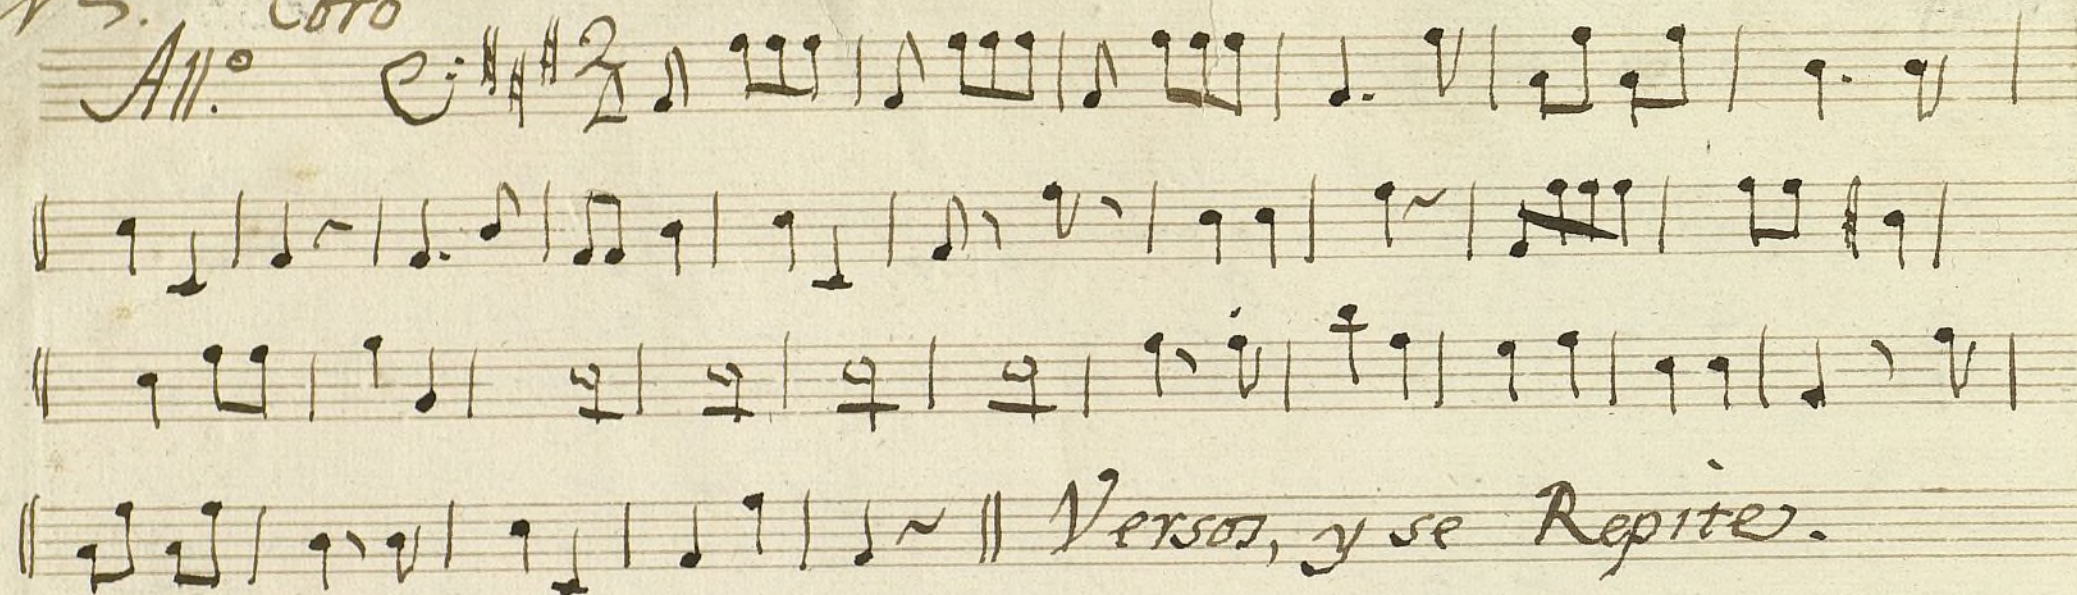 Coro
All.º
2
Versos, y se Repite.